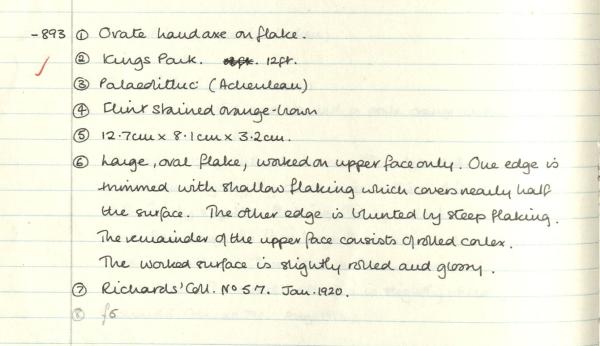 -893 ① Ovate handaxe on flake.
② Kings Park. 12ft.
③ Palaeolithic (Acheulean)
④ Flint stained orange-brown
⑤ 12.7cm x 8.1cm x 3.2cm.
⑥ Large, oval flake, worked on upper face only. One edge is
trimmed with shallow flaking which covers nearly half
the surface. The other edge is blunted by steep flaking.
The remainder of the upper face consists of rolled cortex.
The worked surface is slightly rolled and glossy.
⑦ Richards' Coll. No 57. Jan. 1920.
⑧ f6